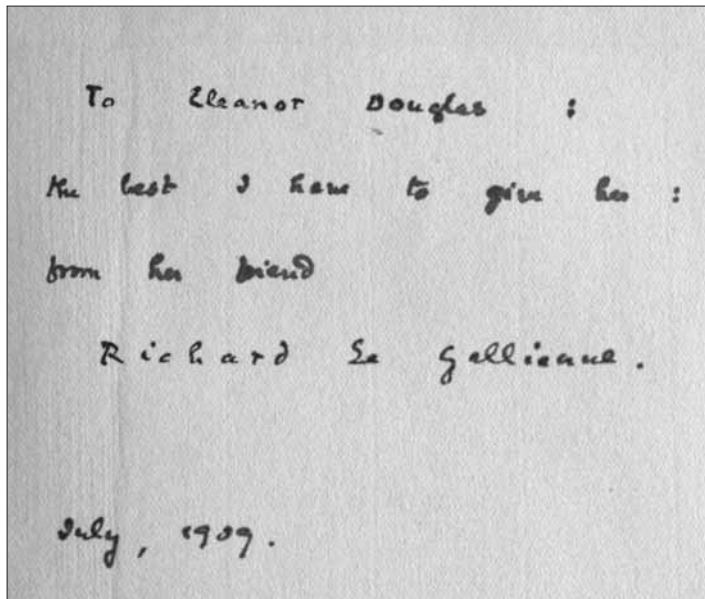 To Eleanor Douglas :
the best I have to give her :
from her friend
Richard Le Gallienne.
July, 1909.